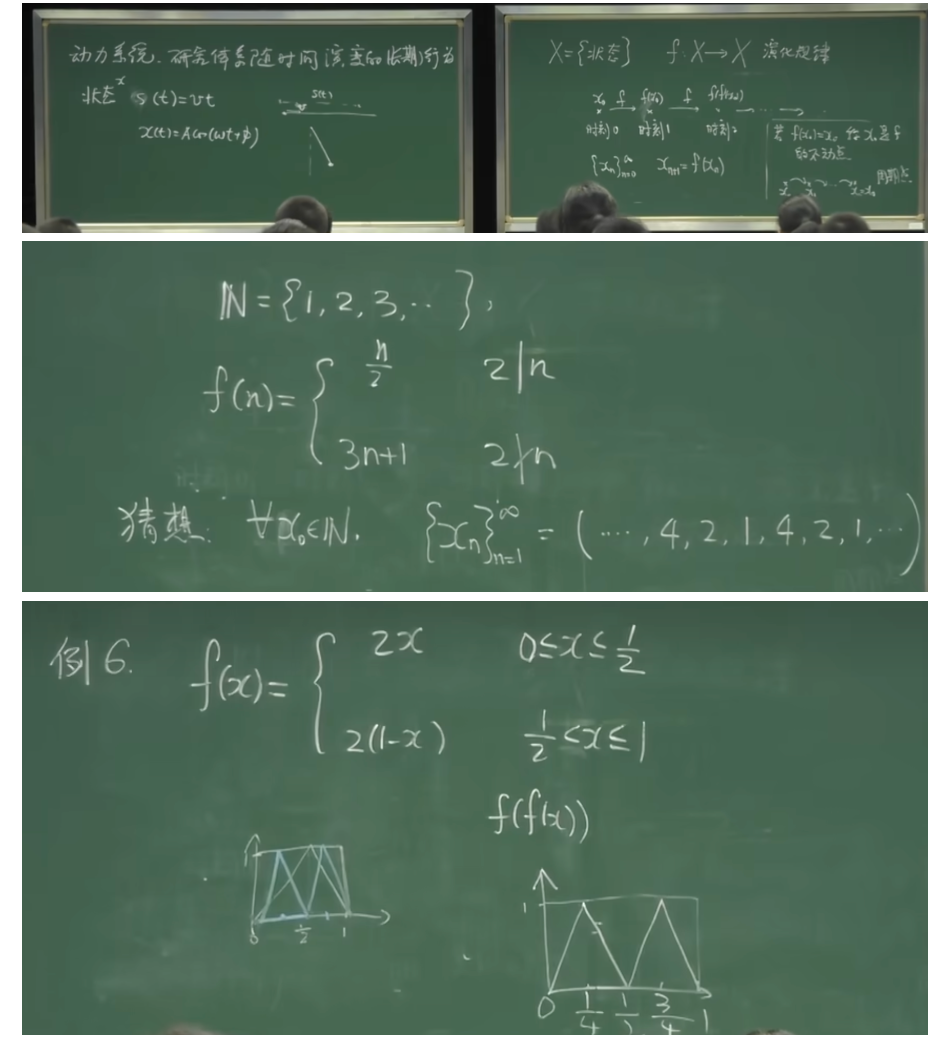 动力系统. 研究体系随时间演变的长期行为
状态 x s(t)=vt
s(t)
x(t)=Acos(ωt+φ)
X={状态} f:X→X 演化规律
x₀ f f(x₀) f f(f(x₀))
时刻0 时刻1 时刻2
{xₙ}ₙ₌₀^∞ xₙ₊₁=f(xₙ)
若 f(x₀)=x₀ 称 x₀ 是 f
的不动点
周期点
ℕ={1,2,3,…},
f(n)={ n/2 2|n
3n+1 2∤n
猜想: ∀x₀∈ℕ. {xₙ}ₙ₌₁^∞=(…,4,2,1,4,2,1,…)
例6. f(x)={ 2x 0≤x≤1/2
2(1-x) 1/2≤x≤1
f(f(x))
1
0 1/2 1
1
0 1/4 1/2 3/4 1